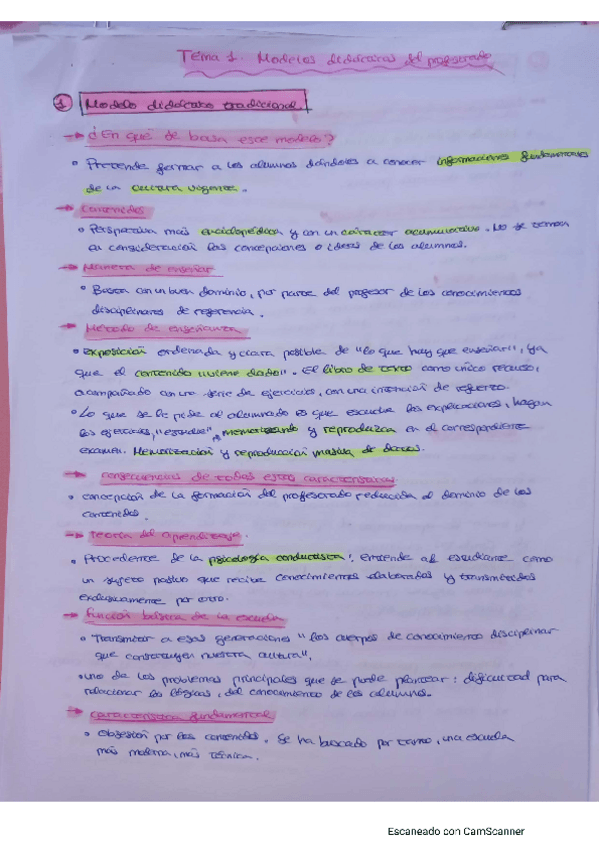 Tema 1. Modelos didácticos del profesorado
1 Modelo didáctico tradicional
→ ¿En qué se basa este modelo?
• Pretende formar a los alumnos dándoles a conocer informaciones fundamentales
de la cultura vigente.
→ Contenidos
• Perspectiva más enciclopédica y con un carácter acumulativo. No se toman
en consideración las concepciones o ideas de los alumnos.
→ Manera de enseñar
• Basta con un buen dominio, por parte del profesor de los conocimientos
disciplinares de referencia.
→ Método de enseñanza
• exposición ordenada y clara posible de "lo que hay que enseñar", ya
que el contenido "viene dado". El libro de texto como único recurso,
acompañado con una serie de ejercicios, con una intención de refuerzo.
• Lo que se le pide al alumnado es que escuche las explicaciones, hagan
los ejercicios, "estudie", memorizando y reproduzca en el correspondiente
examen. Memorización y reproducción masiva de datos.
→ consecuencias de todas estas características
• concepción de la formación del profesorado reducida al dominio de los
contenidos.
→ Teoría del aprendizaje.
• Procedente de la psicología conductista, entiende al estudiante como
un sujeto pasivo que recibe conocimientos elaborados y transmitidos
exclusivamente por otro.
→ Función básica de la escuela
• Transmitir a esas generaciones "los cuerpos de conocimiento disciplinar
que constituyen nuestra cultura".
• uno de los problemas principales que se puede plantear: dificultad para
relacionar las lógicas, del conocimiento de los alumnos.
→ característica fundamental
• Obsesión por los contenidos. Se ha buscado por tanto, una escuela
más moderna, más técnica.
Escaneado con CamScanner